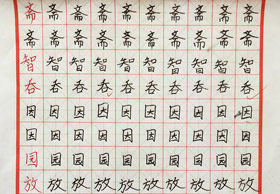 斋 斋 斋 斋 斋 斋 斋 斋
斋 斋 斋 斋 斋 斋 斋 斋
智 智 智 智 智 智 智 智
吞 吞 吞 吞 吞 吞 吞 吞
因 因 因 因 因 因 因 因
因 因 因 因 因 因 因 因
园 园 园 园 园 园 园 园
放 放 放 放 放 放 放 放